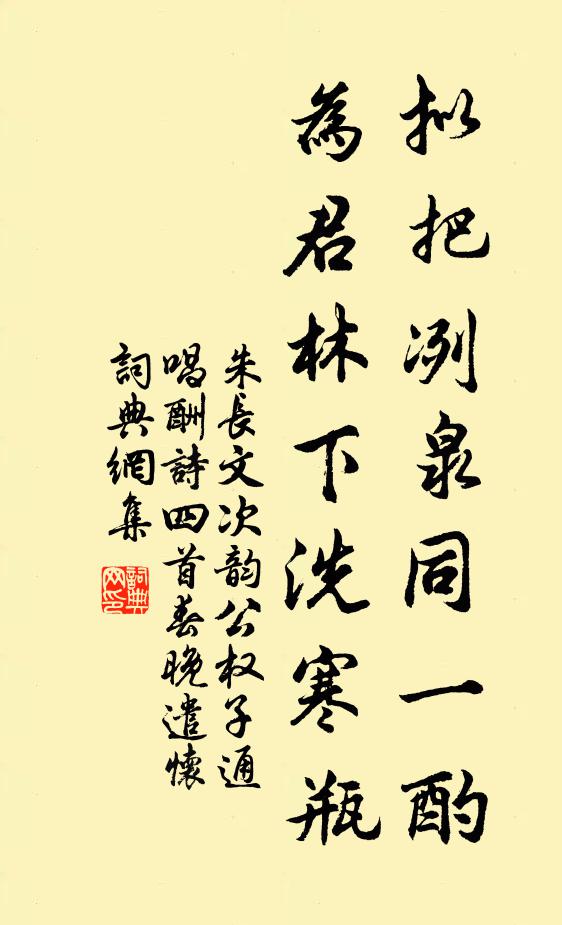 拟把冽泉同一酌
為君林下洗寒瓶
朱長文次韵公权子通
唱酬詩四首春晚遣懷
詞典網集
詞典
网印